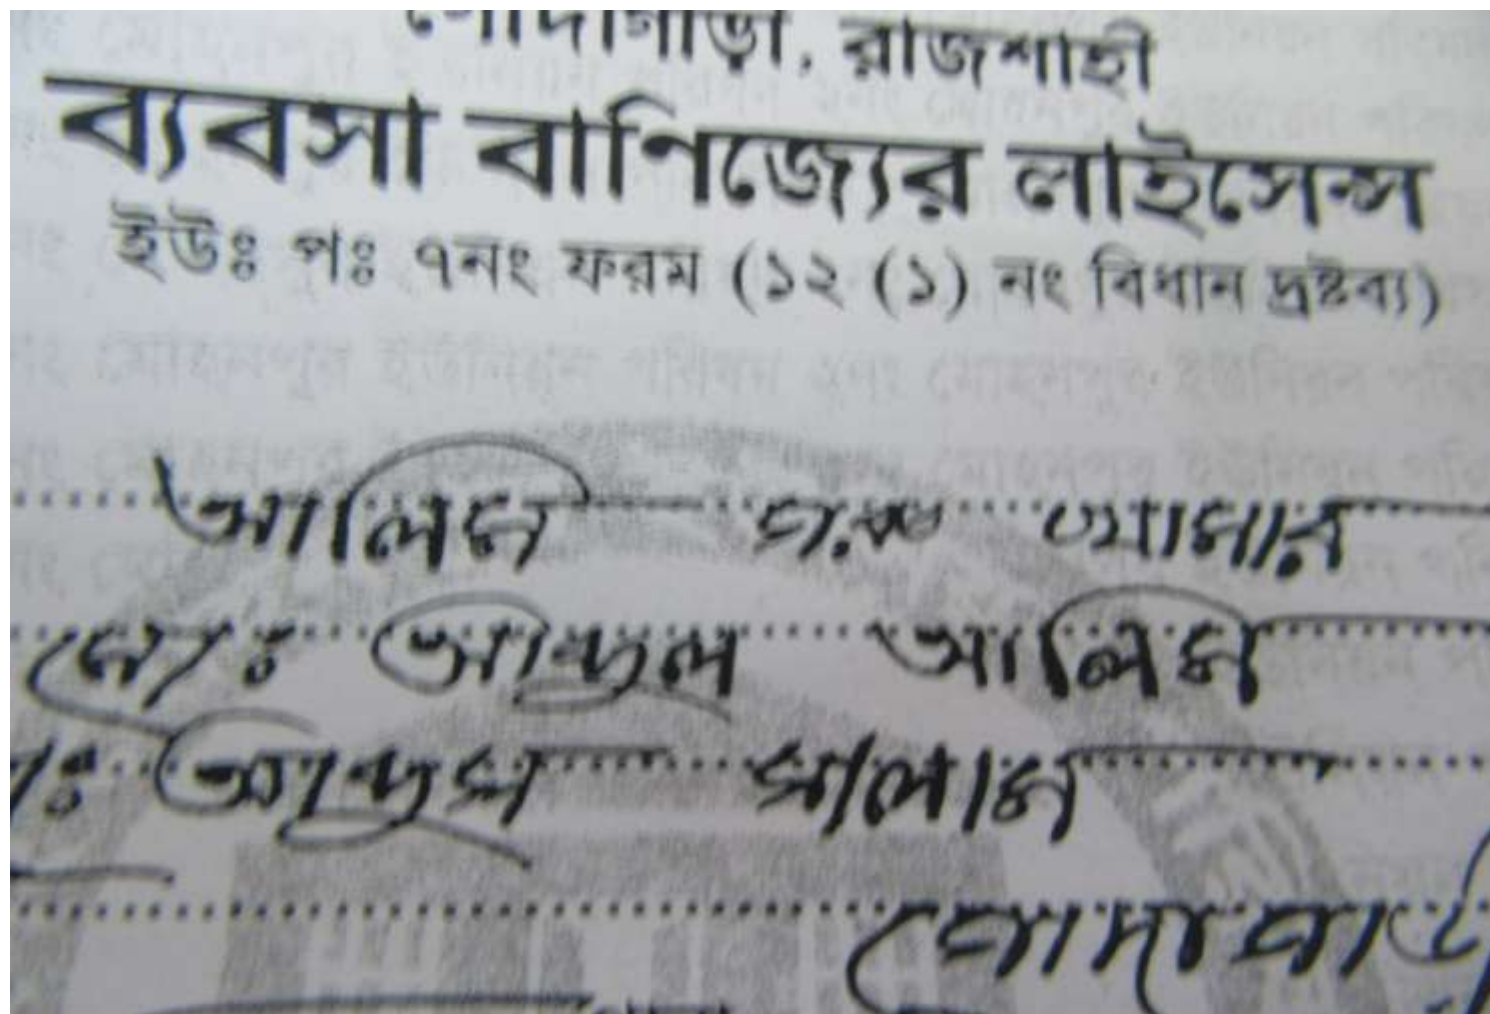 গোদাগাড়ী, রাজশাহী
ব্যবসা বাণিজ্যের লাইসেন্স
ইউঃ পঃ ৭নং ফরম (১২ (১) নং বিধান দ্রষ্টব্য)
আলিম গরু খামার
মোঃ আব্দুল আলিম
আব্দুস সালাম
গোদাগাড়ী